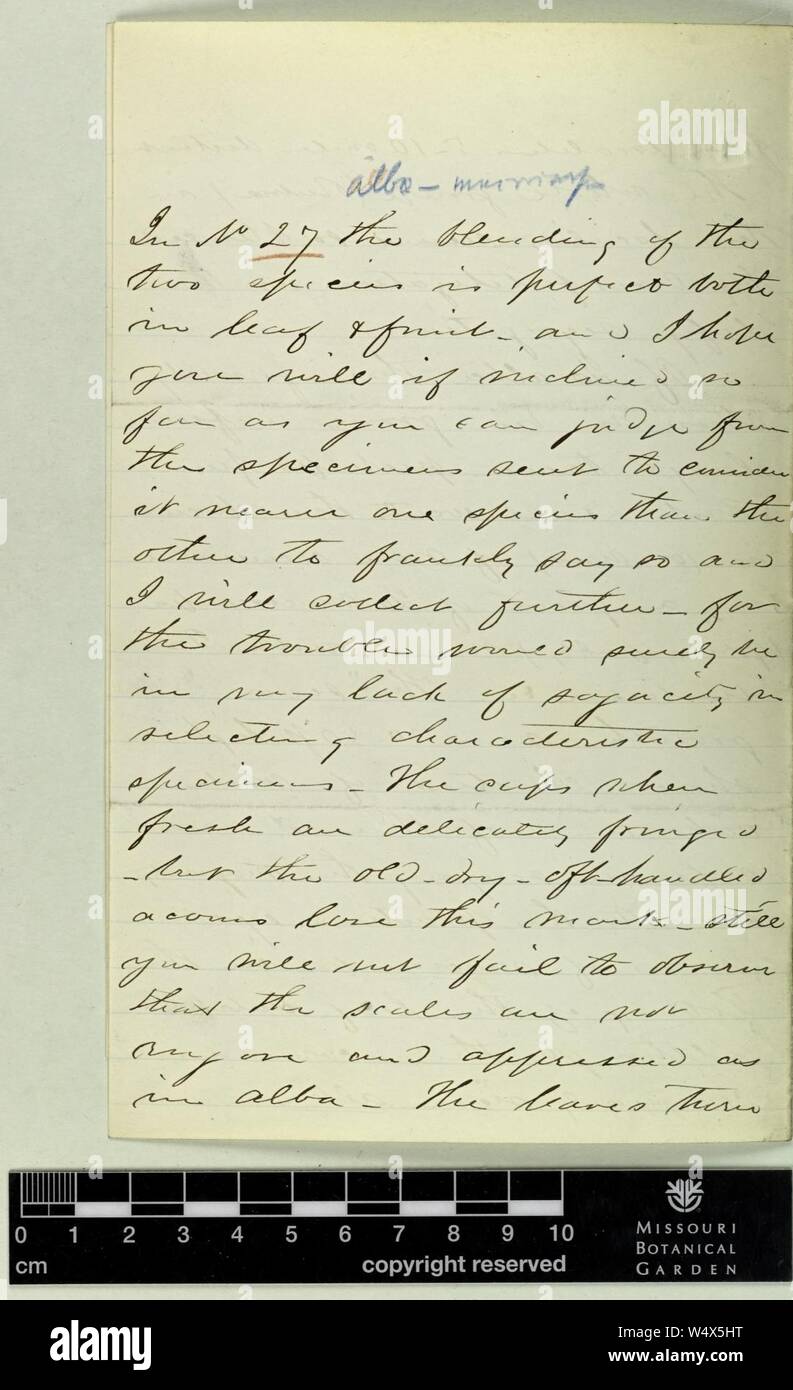 alba –
In No 27 the blending of the
two species is perfect both
in leaf & fruit – and I hope
you will if inclined so
far as you can judge from
the specimens sent to consider
it nearer one species than the
other to frankly say so and
I will collect further – for
the trouble would surely be
in my lack of sagacity in
selecting characteristic
specimens – The cups when
fresh are delicately fringed
– but the old – dry – oft-handled
acorns lose this mark – still
you will not fail to observe
that the scales are not
and appressed as
in alba – The leaves turn
0 1 2 3 4 5 6 7 8 9 10
cm
copyright reserved
MISSOURI
BOTANICAL
GARDEN
alamy
Image ID: W4X5HT
www.alamy.com